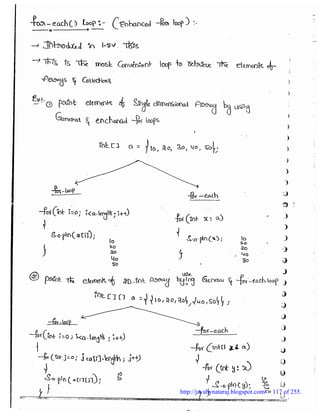 for-each() loop:- (Enhanced for loop):-
→ Introduced in 1.5v this
→ This is the most Convenient loop to retrieve the elements of
Arrays & Collections
Ex1: ① print elements of Single dimensional Array by using
General & enchanced for loops
int[] a = {10, 20, 30, 40, 50};
for-loop
for-each
for(int i=0; i<a.length; i++)
{
S.o.pln(a[i]);
}
10
20
30
40
50
for(int x : a)
{
S.o.pln(x);
}
10
20
30
40
50
② print the elements of 2D-int Array by using General & for-each loop
int[][] a = {{10, 20, 30}, {40, 50}};
for-loop
for-each
for(int i=0; i<a.length; i++)
{
for(int j=0; j<a[i].length; j++)
{
S.o.pln(a[i][j]);
}
for(int[] x : a)
{
for(int y : x)
{
S.o.pln(y);
}
http://javabynataraj.blogspot.com 117 of 255.